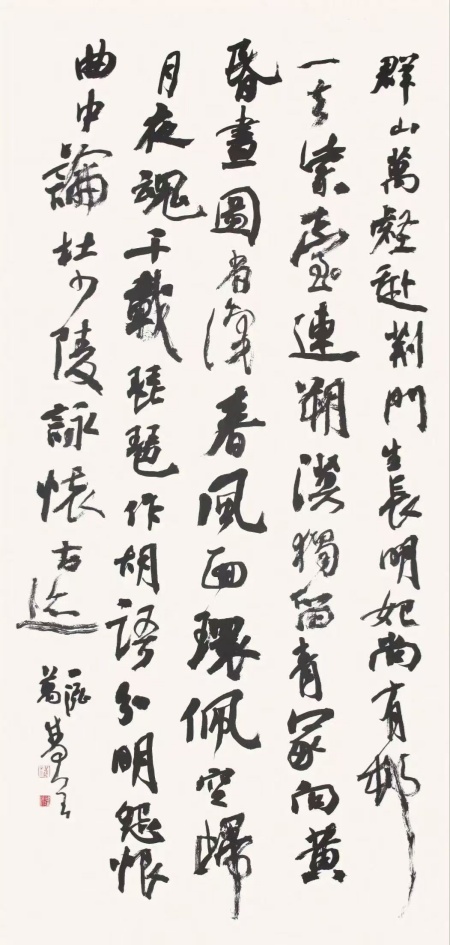 群山萬壑赴荊門生長明妃尚有邨
一去紫臺連朔漠獨留青冢向黃
昏畫圖省識春風面環佩空歸
月夜魂千載琵琶作胡語分明怨恨
曲中論杜少陵詠懷古迹